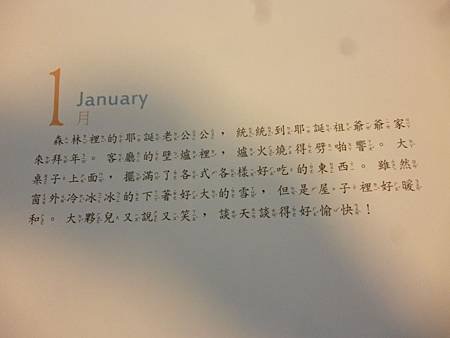 1 January
月
森林裡的耶誕老公公，統統到耶誕祖爺爺家
來拜年。客廳的壁爐裡，爐火燒得劈啪響。大
桌子上面，擺滿了各式各樣好吃的東西。雖然
窗外冷冰冰的下著好大的雪，但是屋子裡好暖
和。大夥兒又說又笑，談天談得好愉快！